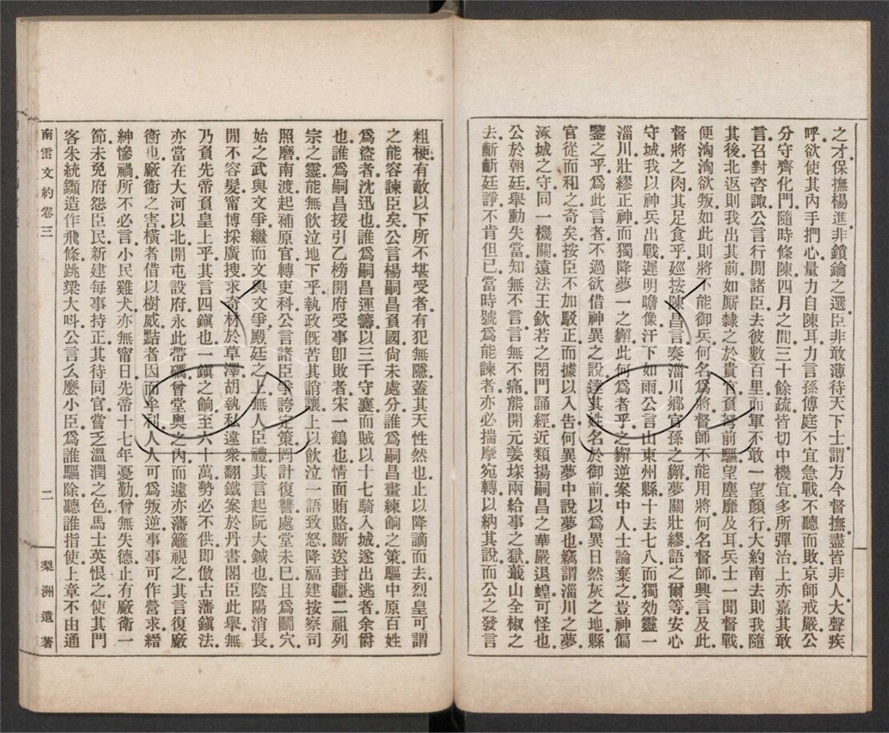 之才保撫楊進非鎖鑰之選臣非敢薄待天下士謂方今督撫盡皆非人大聲疾
呼欲使其內手捫心量力自陳耳力言孫傳庭不宜急戰不聽而敗京師戒嚴公
分守齊化門隨時條陳四月之間三十餘疏皆切中機宜多所彈治上亦嘉其敢
言召對咨諏公言行間諸臣去彼數百里而軍不敢一望顏行大約南去則我隨
其後北返則我出其前如厮隸之於貴官負弩前驅望塵靡及耳兵士一聞督戰
便洶洶欲叛如此則將不能御兵何名為將督師不能用將何名督師興言及此
督將之肉其足食乎廵按陳昌言奏淄川鄉官孫之獬夢關壯繆語之爾等安心
守城我以神兵出戰遲明瞻像汗下如雨公言山東州縣十去七八而獨効靈一
淄川壯繆正神而獨降夢一之獬此何為者乎之獬逆案中人士論棄之豈神偏
鑒之乎為此言者不過欲借神異之說達其姓名於御前以為異日然灰之地縣
官從而和之奇矣按臣不加駁正而據以入告何異夢中說夢也竊謂淄川之夢
涿城之守同一機關遠法王欽若之閉門誦經近類揚嗣昌之華嚴退蝗可怪也
公於朝廷舉動失當知無不言言無不痛熊開元姜垛兩給事之獄蕺山全椒之
去齗齗廷諍不肯但已當時號為能諫者亦必揣摩宛轉以納其說而公之發言
粗梗有敵以下所不堪受者有犯無隱蓋其天性然也止以降謫而去烈皇可謂
之能容諫臣矣公言楊嗣昌負國尙未處分誰為嗣昌畫練餉之策驅中原百姓
為盜者沈迅也誰為嗣昌運籌以三千守襄而賊以十七騎入城遂出逃者余爵
也誰為嗣昌援引乙榜開府受事卽敗者宋一鶴也情面賄賂斷送封疆二祖列
宗之靈能無飲泣地下乎執政旣苦其誚讓上以飲泣一語致怒降福建按察司
照磨南渡起補原官轉吏科公言諸臣爭誇定策罔計復讐處堂未巳且為鬭穴
始之武與文爭繼而文與文爭殿廷之上無人臣禮其言起阮大鋮也陰陽消長
閒不容髮甯博採廣搜求奇材於草澤胡執私違衆翻鐵案於丹書閣臣此舉無
乃負先帝負皇上乎其言四鎭也一鎭之餉至六十萬勢必不供卽倣古藩鎭法
亦當在大河以北開屯設府永此帶礪曾堂奥之內而遽亦藩籬視之其言復廠
衛也廠衛之害橫者借以樹威黠者因而牟利人人可為叛逆事事可作營求縉
紳慘禍所不必言小民雞犬亦無甯日先帝十七年憂勤曾無失德止有廠衛一
節未免府怨臣民新建每事持正其待同官嘗乏溫潤之色馬士英恨之使其門
客朱統䥍造作飛條跳梁大呌公言么麽小臣為誰驅除聽誰指使上章不由通
南雷文約卷三
二
梨洲遺著